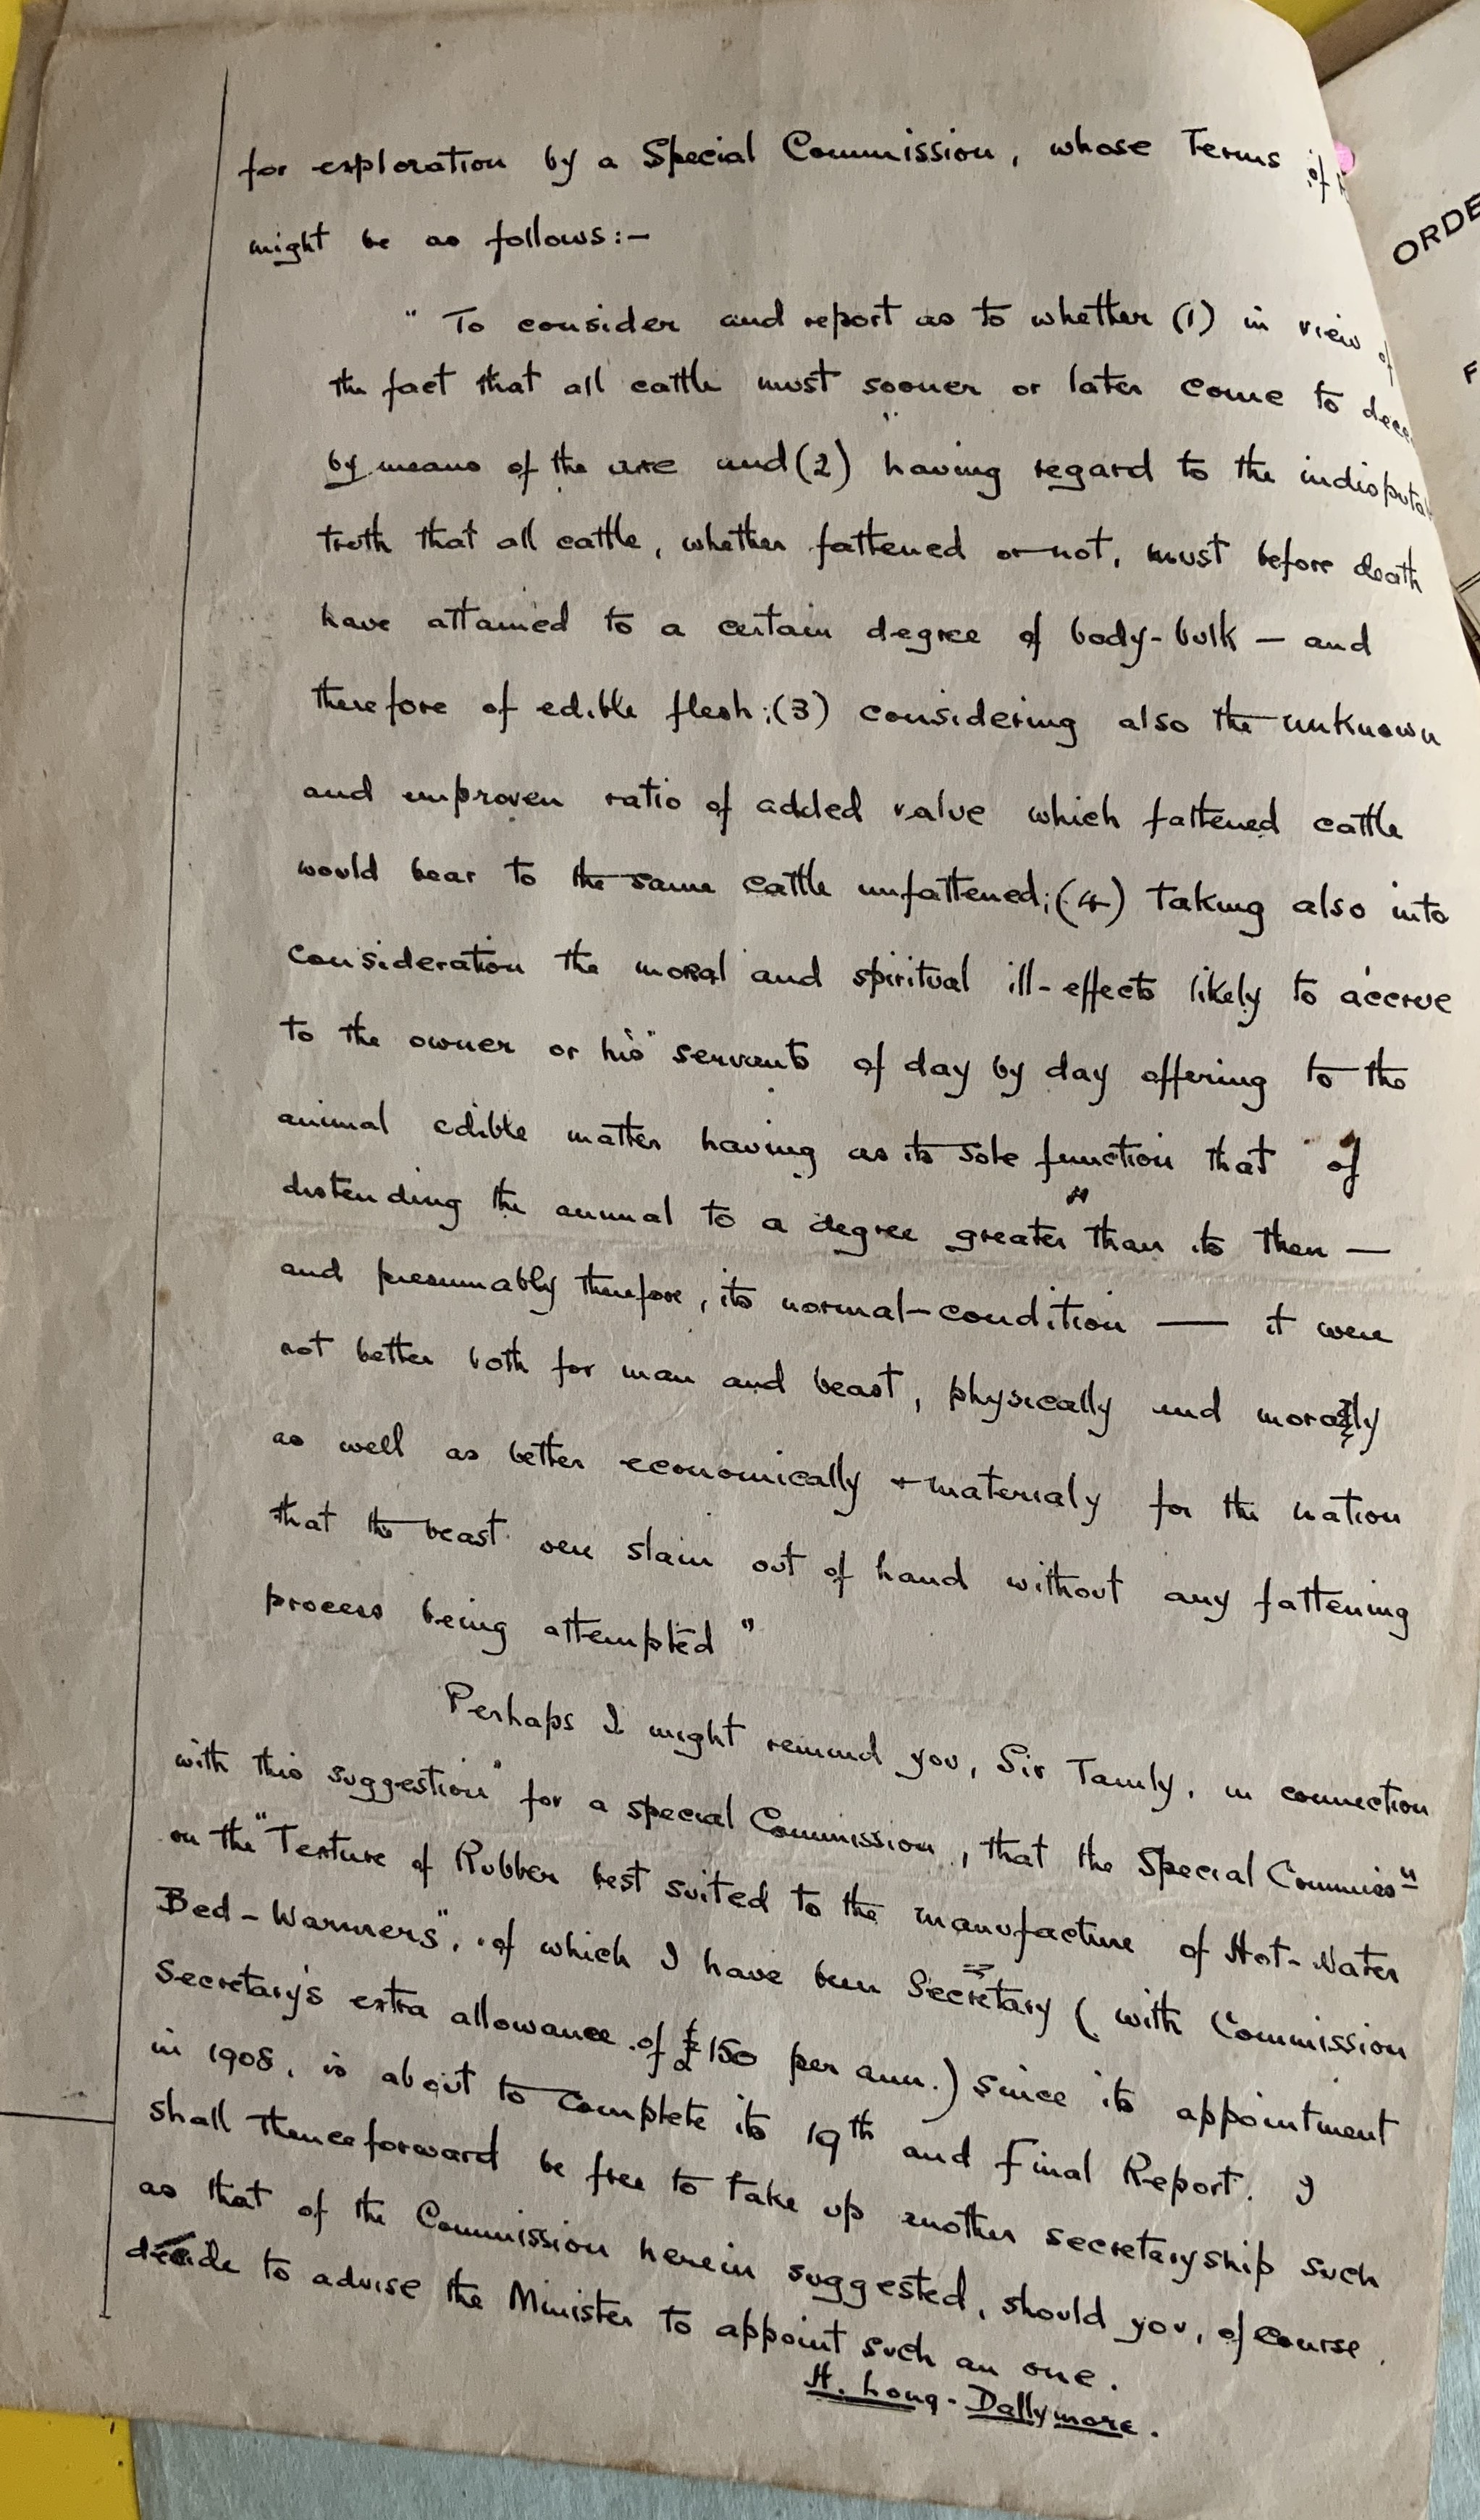 for exploration by a Special Commission, whose Terms of
might be as follows:—
" To consider and report as to whether (1) in view of
the fact that all cattle must sooner or later come to
by means of the axe and (2) having regard to the
truth that all cattle, whether fattened or not, must before death
have attained to a certain degree of body-bulk — and
therefore of edible flesh; (3) considering also the unknown
and unproven ratio of added value which fattened cattle
would bear to the same cattle unfattened; (4) taking also into
consideration the moral and spiritual ill-effects likely to accrue
to the owner or his servants of day by day offering to the
animal edible matter having as its sole function that of
distending the animal to a degree greater than its then —
and presumably therefore, its normal-condition — it were
not better both for man and beast, physically and morally
as well as better economically + materialy for the nation
that the beast were slain out of hand without any fattening
process being attempted "
Perhaps I might remind you, Sir, in connection
with this suggestion for a special Commission, that the Special Commissn
on the "Texture of Rubber best suited to the manufacture of Hot-Water
Bed-Warmers", of which I have been Secretary ( with Commission
Secretary's extra allowance of £150 per ann.) since its appointment
in 1908, is about to complete its 19th and Final Report. I
shall thenceforward be free to take up another secretaryship such
as that of the Commission herein suggested, should you, of course,
decide to advise the Minister to appoint such an one.
H. Long-Dallymore.
ORDE
F